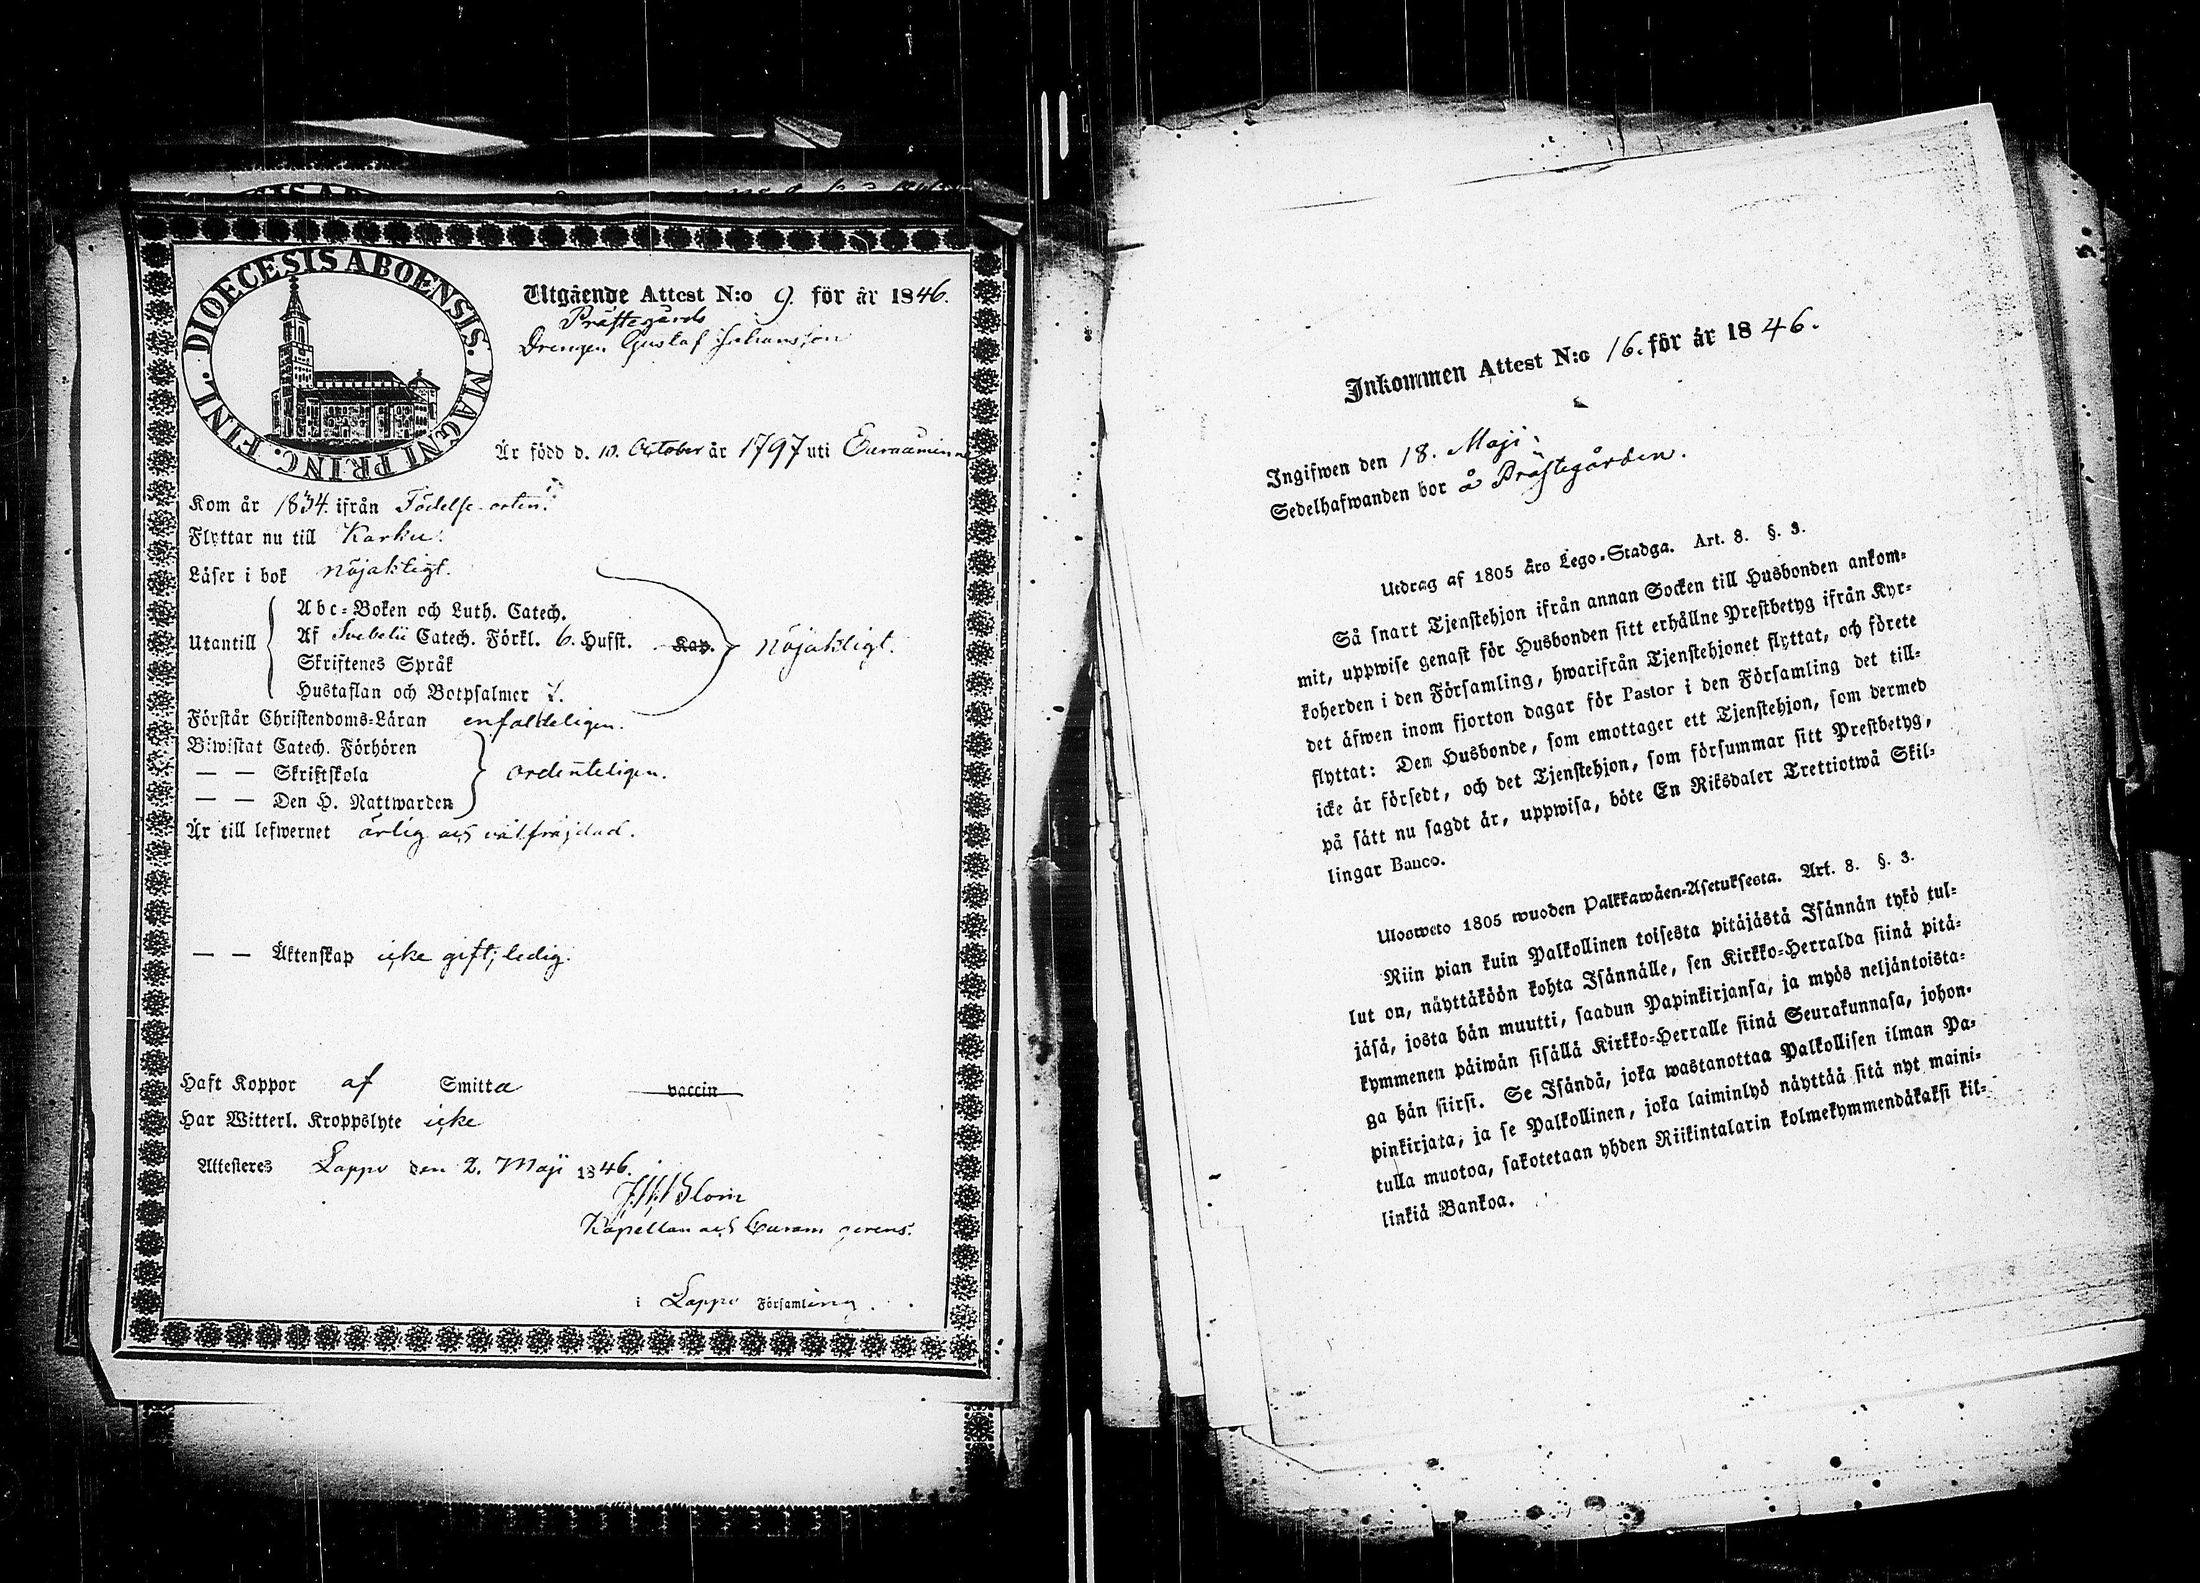 DIOECESIS ABOENSIS. MAGNI PRINC. FINL.
Utgående Attest N:o 9. för år 1846.
Prästegårds
Drengen Gustaf Johansson
Är född d. 10. October år 1797 uti Euraåminne
Kom år 1834. ifrån Födelse-orten.
Flyttar nu till Karku.
Läser i bok nöjaktigt.
Utantill
Abc-Boken och Luth. Catech.
Af Svebelii Catech. Förkl. 6. Hufst. Kap.
Skriftenes Språk
Hustaflan och Botpsalmer 7.
nöjaktigt.
Förstår Christendoms-Läran enfaldeligen.
Biwistat Catech. Förhören
— — Skriftskola
— — Den H. Nattwarden
ordenteligen.
Är till lefwernet ärlig och välfräjdad.
— — Äktenskap icke gift; ledig.
Haft Koppor af Smitta vaccin
Har Witterl. Kroppslyte icke
Attesteres Lappo den 2. Maji 1846.
Blom
Kapellan och Curam gerens.
i Lappo Församling.
Inkommen Attest N:o 16. för år 1846.
Ingifwen den 18. Maji.
Sedelhafwanden bor å Prästegården.
Utdrag af 1805 års Lego-Stadga. Art. 8. §. 3.
Så snart Tjenstehjon ifrån annan Socken till Husbonden ankom-
mit, uppwise genast för Husbonden sitt erhållne Prestbetyg ifrån Kyr-
koherden i den Församling, hwarifrån Tjenstehjonet flyttat, och förete
det äfwen inom fjorton dagar för Pastor i den Församling det till-
flyttat: Den Husbonde, som emottager ett Tjenstehjon, som dermed
icke är försedt, och det Tjenstehjon, som försummar sitt Prestbetyg,
på sätt nu sagdt är, uppwisa, böte En Riksdaler Trettiotwå Skil-
lingar Banco.
Ulosweto 1805 wuoden Palkkawäen-Asetuksesta. Art. 8. §. 3.
Niin pian kuin Palkollinen toisesta pitäjästä Isännän tykö tul-
lut on, näyttäköön kohta Isännälle, sen Kirkko-Herralda siinä pitä-
jäsä, josta hän muutti, saadun Papinkirjansa, ja myös neljäntoista-
kymmenen päiwän sisällä Kirkko-Herralle siinä Seurakunnasa, johon-
ga hän siirsi. Se Isändä, joka wastanottaa Palkollisen ilman Pa-
pinkirjata, ja se Palkollinen, joka laiminlyö näyttää sitä nyt maini-
tulla muotoa, sakotetaan yhden Riikintalarin kolmekymmendäkaksi kil-
linkiä Bankoa.